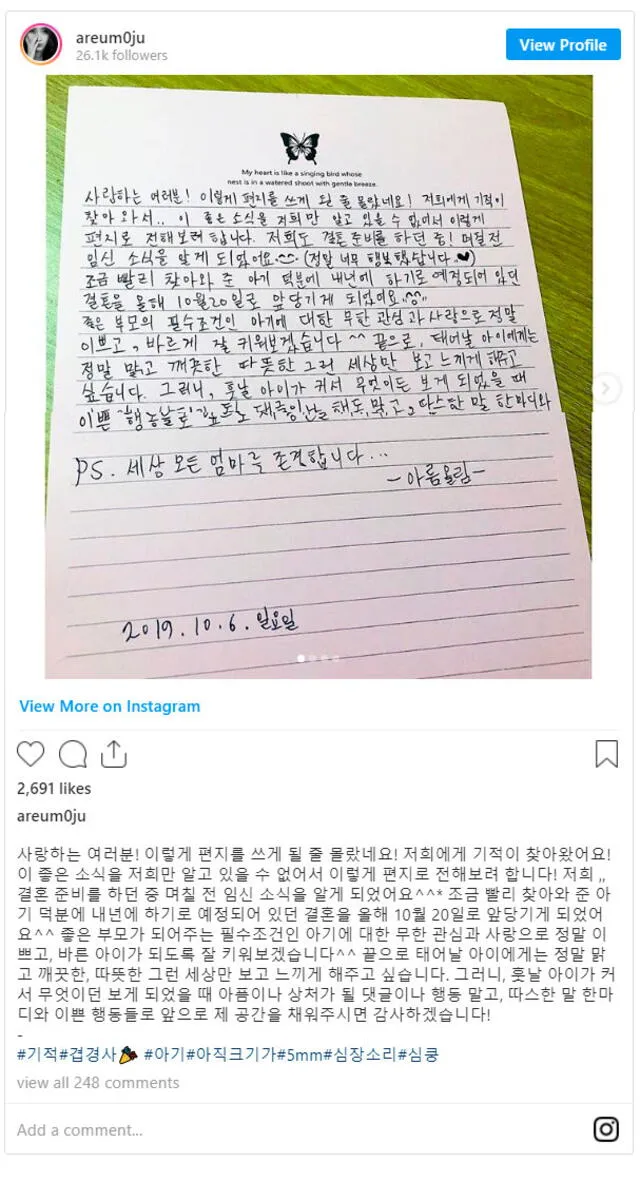 areum0ju
26.1k followers
View Profile
My heart is like a singing bird whose
nest is in a watered shoot with gentle breeze.
사랑하는 여러분! 이렇게 편지를 쓰게 될 줄 몰랐네요! 저희에게 기적이
찾아 와서.. 이 좋은 소식을 저희만 알고 있을 수 없어서 이렇게
편지로 전해보려 합니다. 저희도 결혼 준비를 하던 중! 며칠 전
임신 소식을 알게 되었어요 (정말 너무 행복했답니다 ♥)
조금 빨리 찾아와 준 아기 덕분에 내년에 하기로 예정되어 있던
결혼을 올해 10월 20일로 앞당기게 되었어요 ^^
좋은 부모의 필수조건인 아기에 대한 무한 관심과 사랑으로 정말
이쁘고, 바르게 잘 키워보겠습니다 ^^ 끝으로, 태어날 아이에게는
정말 맑고 깨끗한 따뜻한 그런 세상만 보고 느끼게 해주고
싶습니다. 그러니, 훗날 아이가 커서 무엇이든 보게 되었을 때
이쁜 말 한마디와
PS. 세상 모든 엄마를 존경합니다...
-아름올림-
2019. 10. 6. 일요일
View More on Instagram
2,691 likes
areum0ju
사랑하는 여러분! 이렇게 편지를 쓰게 될 줄 몰랐네요! 저희에게 기적이 찾아왔어요!
이 좋은 소식을 저희만 알고 있을 수 없어서 이렇게 편지로 전해보려 합니다! 저희 ,,
결혼 준비를 하던 중 며칠 전 임신 소식을 알게 되었어요^^* 조금 빨리 찾아와 준 아
기 덕분에 내년에 하기로 예정되어 있던 결혼을 올해 10월 20일로 앞당기게 되었어
요^^ 좋은 부모가 되어주는 필수조건인 아기에 대한 무한 관심과 사랑으로 정말 이
쁘고, 바른 아이가 되도록 잘 키워보겠습니다^^ 끝으로 태어날 아이에게는 정말 맑
고 깨끗한, 따뜻한 그런 세상만 보고 느끼게 해주고 싶습니다. 그러니, 훗날 아이가 커
서 무엇이던 보게 되었을 때 아픔이나 상처가 될 댓글이나 행동 말고, 따스한 말 한마
디와 이쁜 행동들로 앞으로 제 공간을 채워주시면 감사하겠습니다!
-
#기적#겹경사🎉 #아기#아직크기가#5mm#심장소리#심쿵
view all 248 comments
Add a comment...